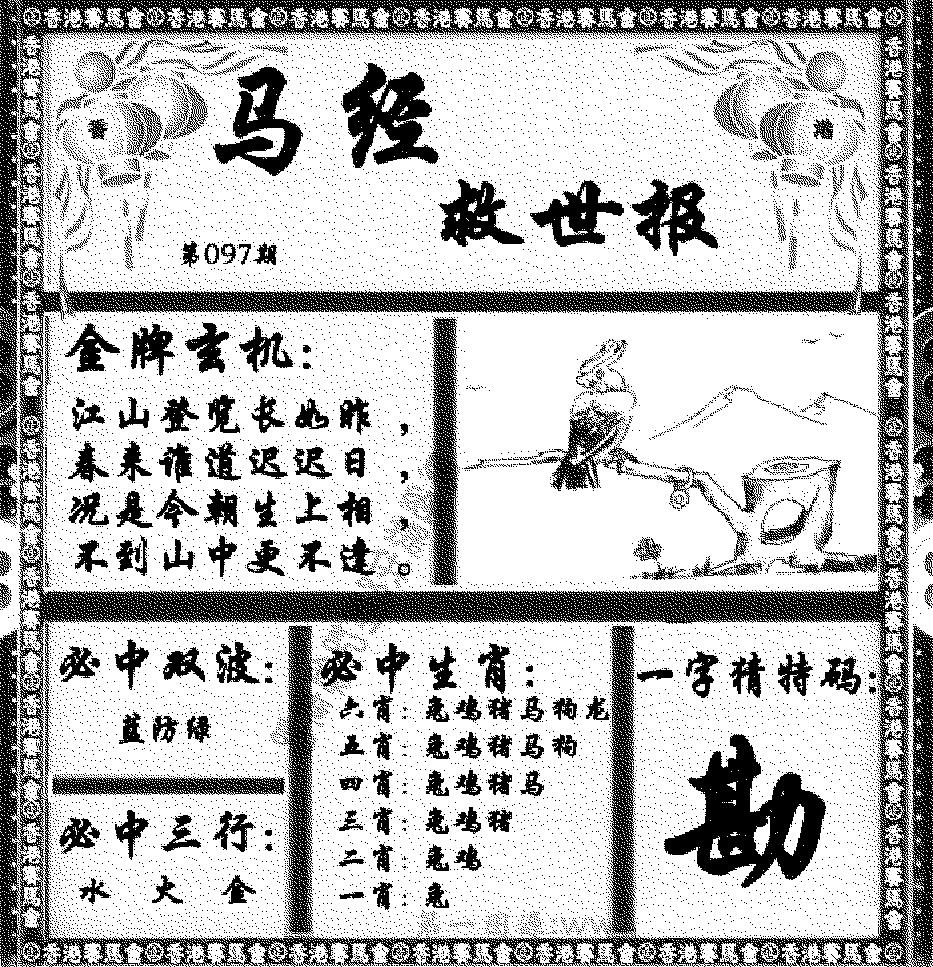 香港赛馬會 香港赛馬會 香港赛馬會 香港赛馬會 香港赛馬會 香港赛馬會 香港赛馬會
香
港
马经
救世报
第097期
金牌玄机:
江山登览长如昨,
春来谁道迟迟日,
况是今朝生上相,
不到山中更不逢。
必中双波:
蓝防绿
必中三行:
水 火 金
必中生肖:
六肖: 兔鸡猪马狗龙
五肖: 兔鸡猪马狗
四肖: 兔鸡猪马
三肖: 兔鸡猪
二肖: 兔鸡
一肖: 兔
一字猜特码:
勘
香港赛馬會 香港赛馬會 香港赛馬會 香港赛馬會 香港赛馬會 香港赛馬會 香港赛馬會